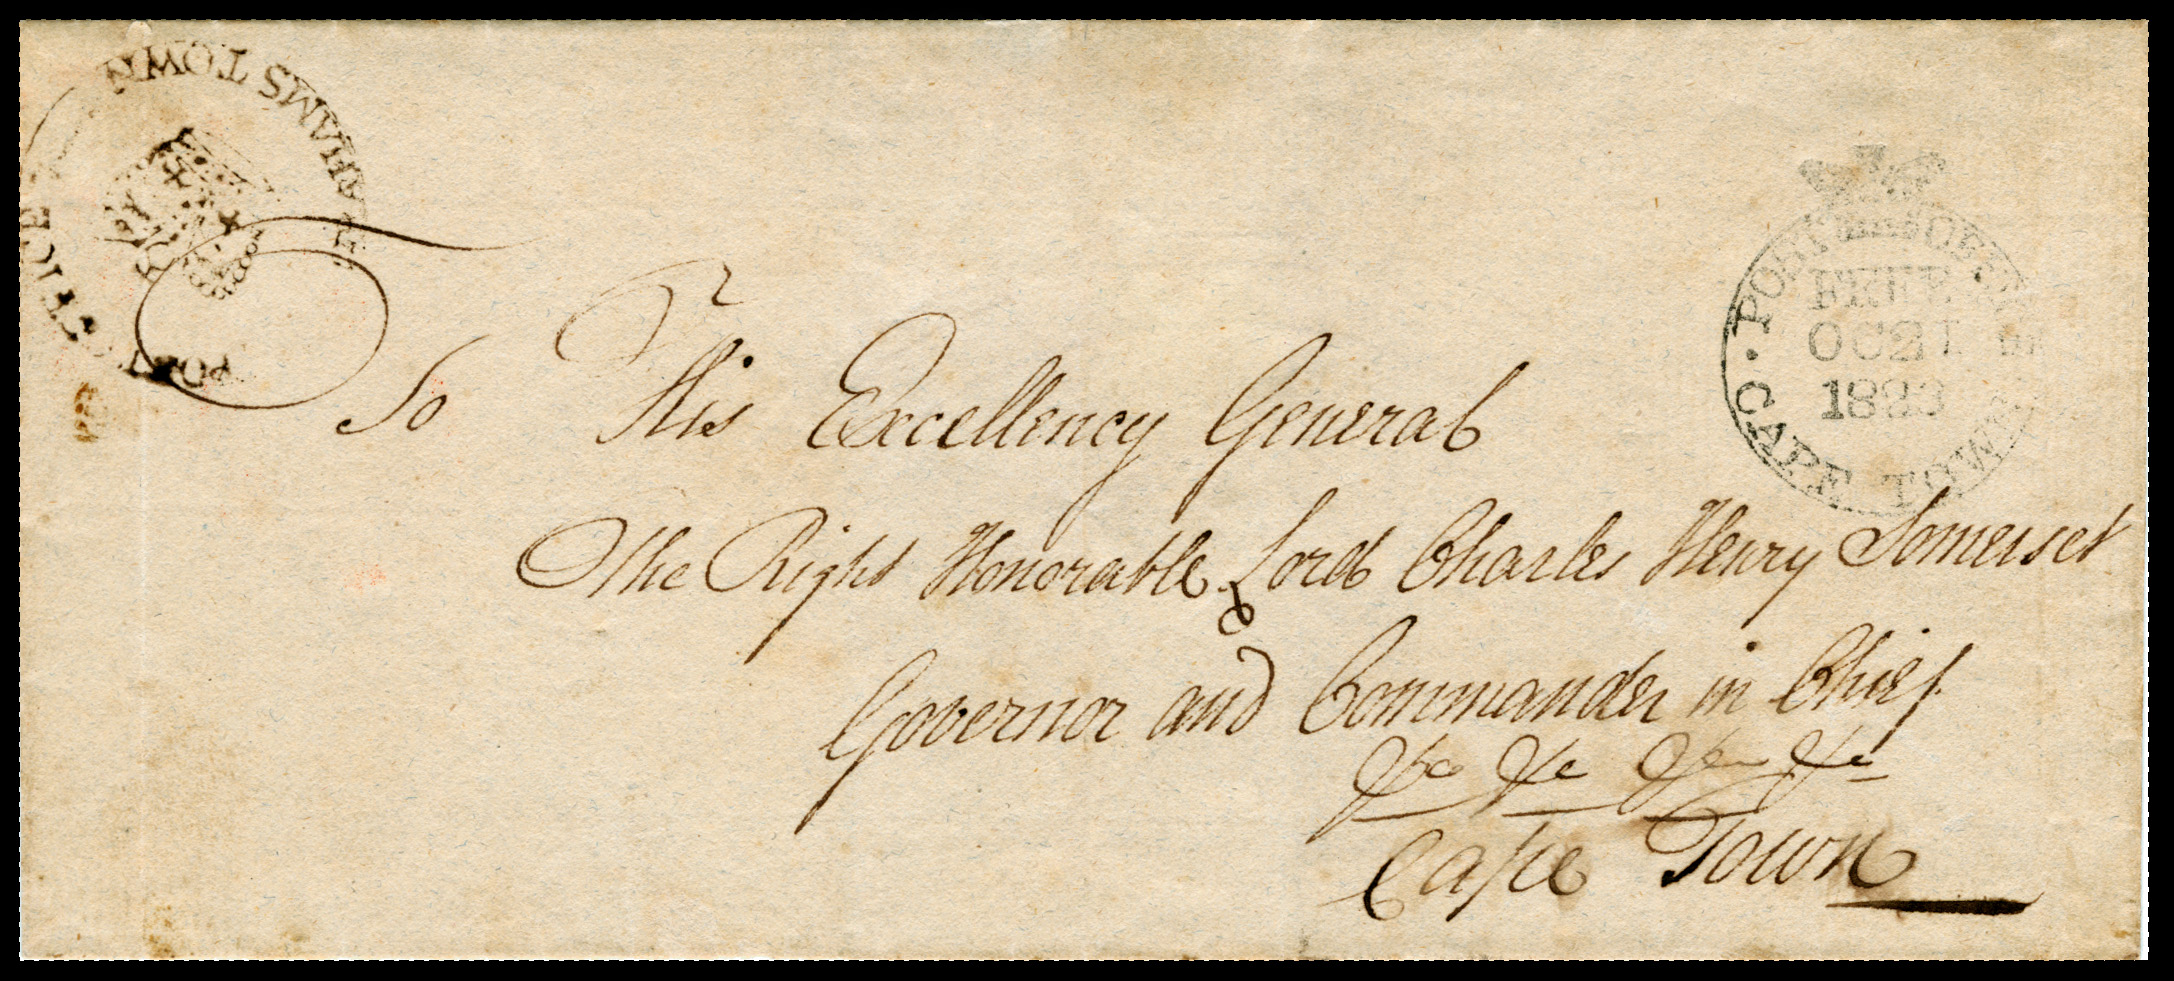 POST OFFICE
GRAHAMS TOWN
POST OFFICE
FREE
OC 21
1823
CAPE TOWN
To His Excellency General
The Right Honorable Lord Charles Henry Somerset
Governor and Commander in Chief
&c &c &c &c
Cape Town